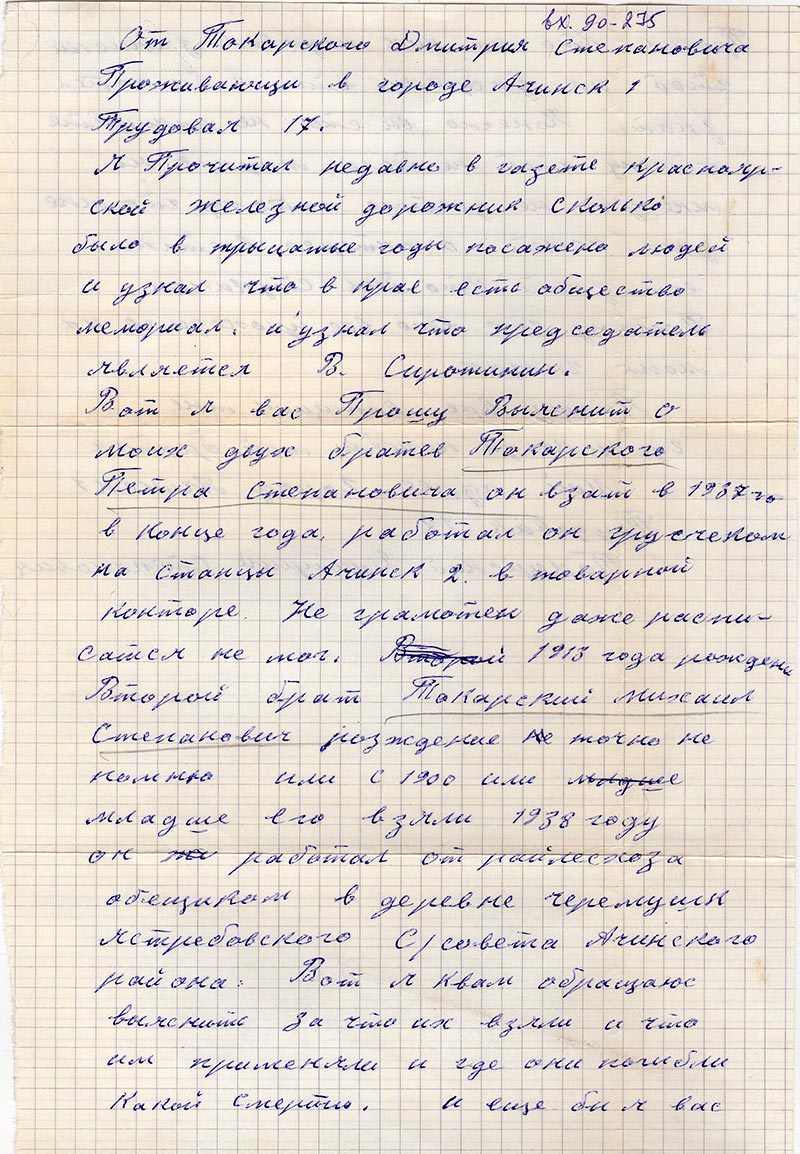 вх. 90-275
От Токарского Дмитрия Степановича
Проживающи в городе Ачинск 1
Трудовая 17.
Я Прочитал недавно в газете Краснояр-
ской железной дорожник сколько
было в трыцатые годы посажено людей
и узнал что в крае есть общество
мемориал. и узнал что председатель
является В. Сиротинин.
Вот я вас Прошу Выяснит о
моих двух братев Токарского
Петра Степановича он взат в 1937 го
в конце года, работал он грузчеком
на Станцы Ачинск 2. в товарной
конторе. Не грамотен даже распи-
сатся не мог. Второй 1913 года рождени
Второй брат Токарский михаил
Степанович рождение не точно не
помню или с 1900 или младше
младше его взяли 1938 году
он работал от райлесхоза
обещиком в деревне черемушк
Ястребовского С/совета Ачинского
района. Вот я Квам обращаюс
выяснить за что их взяли и что
им применяли и где они погибли
Какой Смертю. и еще бы я вас